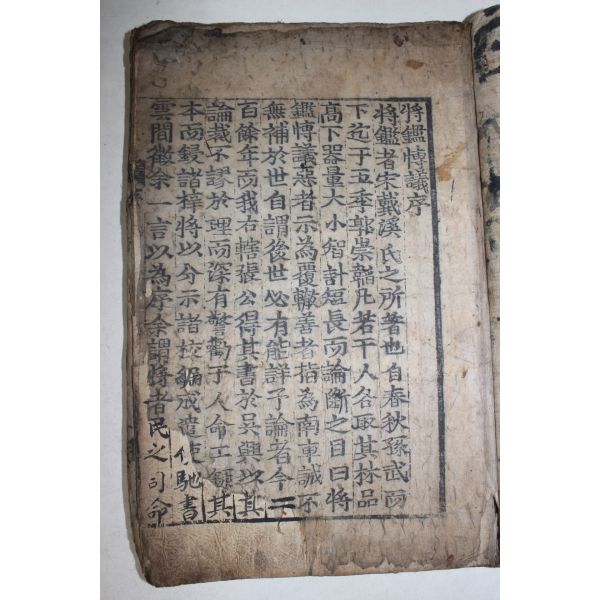 將鑑博議序
將鑑者宋戴溪氏之所著也自春秋孫武而
下迄于五季郭崇韜凡若干人各取其材品
高下器量大小智計短長而論斷之目曰將
鑑博議惡者示為覆轍善者指為南車誠不
無補於世自謂後世必有能詳予論者今二
百餘年而我右轄張公得其書於吳興以其
論裁不謬於理而深有警勸于人命工鋟其
本而鋟諸梓將以分示諸校騙戒遣使馳書
雲間徵余一言以為序余謂將者民之司命